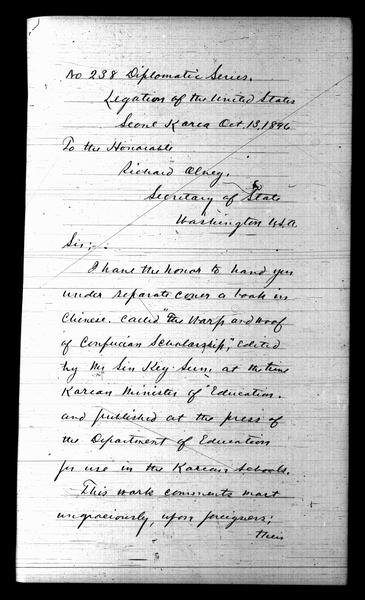 No 238 Diplomatic Series.
Legation of the United States
Seoul Korea Oct. 13, 1896
To the Honorable
Richard Olney.
Secretary of State
Washington U.S.A.
Sir;.
I have the honor to hand you
under separate cover a book in
Chinese. Called "The Warp and Woof
of Confucian Scholarship", edited
by Mr Sin Key Sun, at the time
Korean Minister of Education.
and published at the press of
the Department of Education
for use in the Korean Schools.
This work comments most
ungraciously upon foreigners;
their